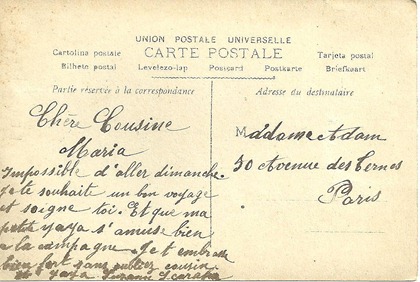 UNION POSTALE UNIVERSELLE
CARTE POSTALE
Cartolina postale
Tarjeta postal
Bilhete postal Levelezo-lap Postcard Postkarte Briefkaart
Partie réservée à la correspondance
Adresse du destinataire
Chère Cousine
Maria
Impossible d'aller dimanche.
je te souhaite un bon voyage
et soigne toi. Et que ma
petite yaya s'amuse bien
a la campagne. Je t embrasse
bien fort sans oublier cousin
et yaya Suzanne
Madame Adam
30 Avenue des Ternes
Paris